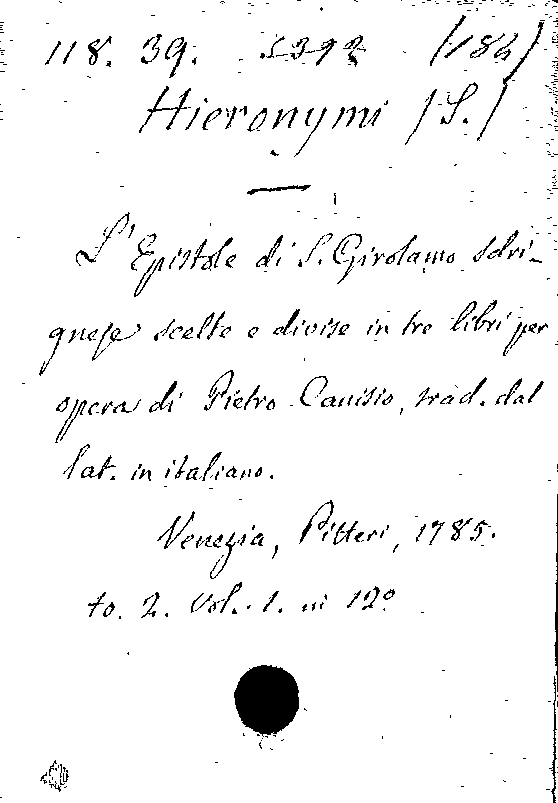 118. 39.
Hieronymi (S.)
L'Epistole di S. Girolamo sdri-
gnese scelte e divise in tre libri per
opera di Pietro Canisio, trad. dal
lat. in italiano.
Venezia, Pitteri, 1785.
to. 2. Vol. 1. in 12º